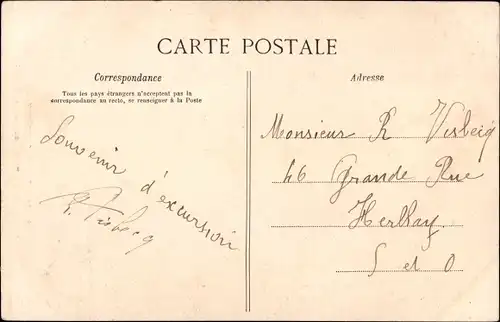 CARTE POSTALE
Correspondance
Tous les pays étrangers n'acceptent pas la
correspondance au recto, se renseigner à la Poste
Souvenir
d'excursion
R.
Adresse
Monsieur R
46 Grande Rue
Herblay
S et O